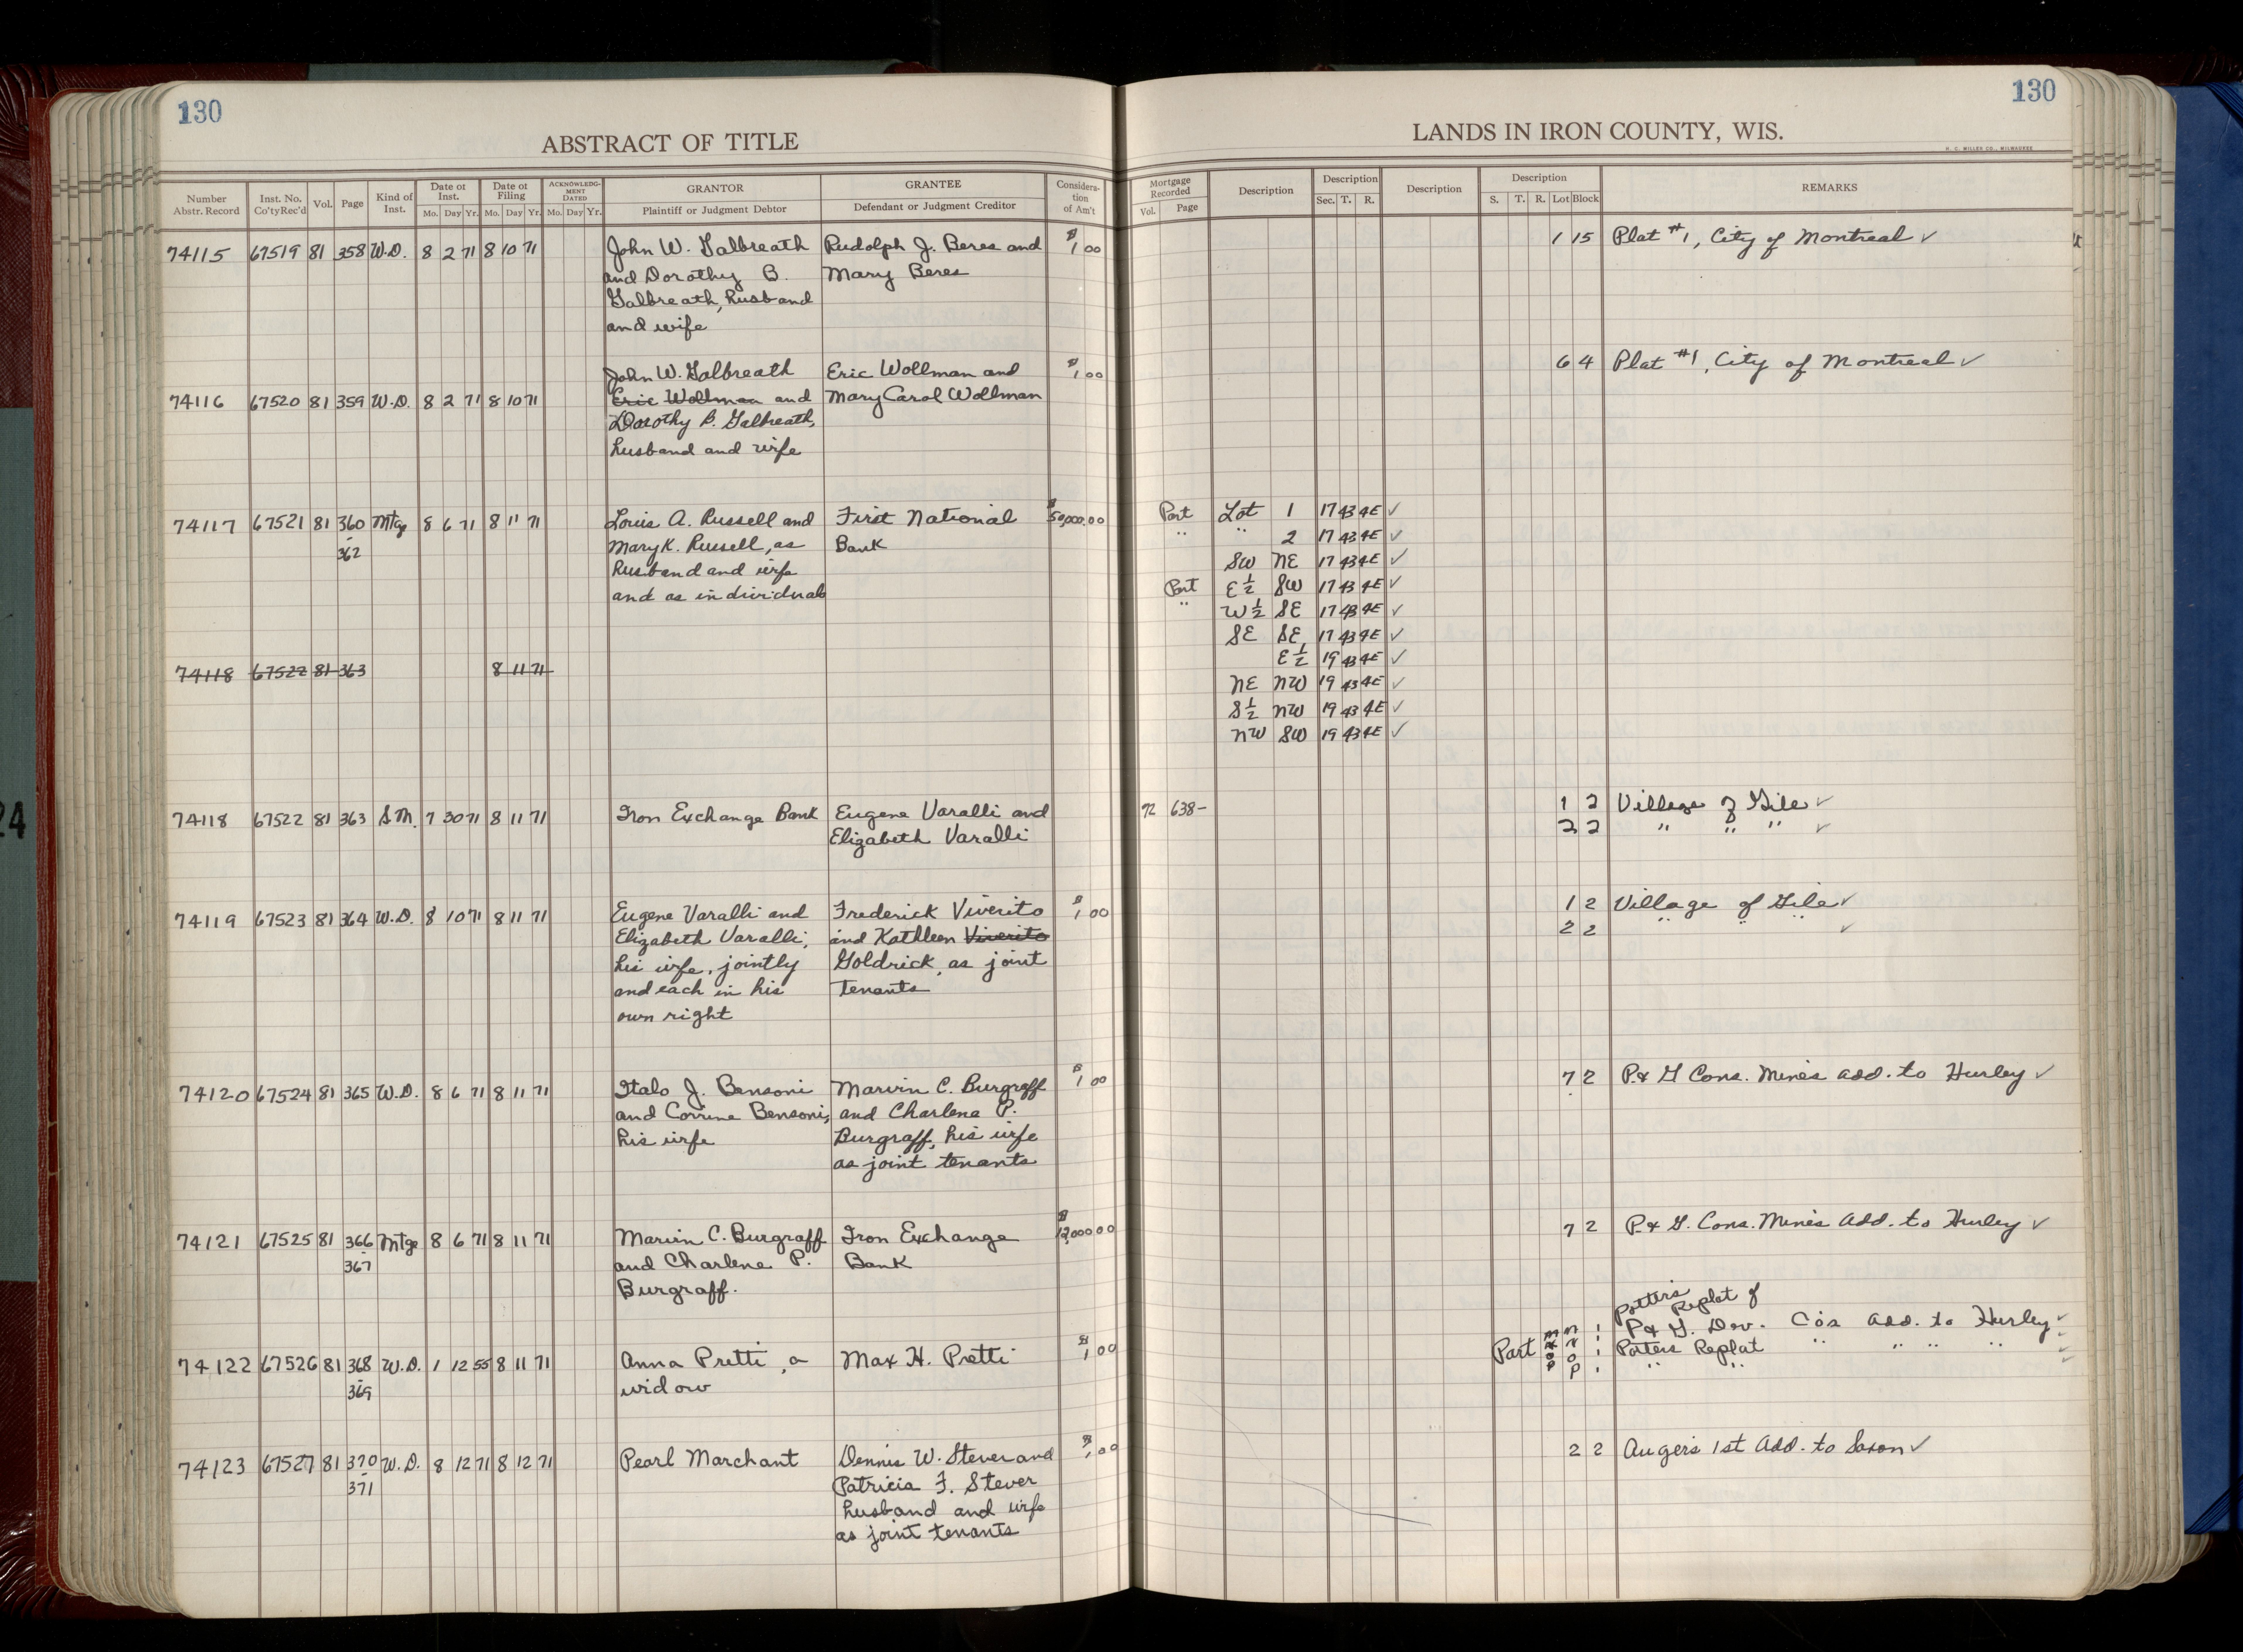 130
130
ABSTRACT OF TITLE
LANDS IN IRON COUNTY, WIS.
H. C. MILLER CO., MILWAUKEE
Number Abstr. Record
Inst. No. Co'tyRec'd
Vol.
Page
Kind of Inst.
Date of Inst.
Mo. Day Yr.
Date of Filing
Mo. Day Yr.
ACKNOWLEDGMENT DATED
Mo. Day Yr.
GRANTOR
Plaintiff or Judgment Debtor
GRANTEE
Defendant or Judgment Creditor
Consideration of Am't
Mortgage Recorded
Vol. Page
Description
Description
Sec. T. R.
Description
Description
S. T. R. Lot Block
REMARKS
74115 67519 81 358 W.D. 8 2 71 8 10 71 John W. Galbreath Rudolph J. Beres and $1 00 1 15 Plat #1, City of Montreal ✓
and Dorothy B. Mary Beres
Galbreath, husband
and wife
John W. Galbreath Eric Wollman and $1 00 6 4 Plat #1, City of Montreal ✓
74116 67520 81 359 W.D. 8 2 71 8 10 71 Eric Wollman and Mary Carol Wollman
Dorothy B. Galbreath,
husband and wife
74117 67521 81 360 Mtge 8 6 71 8 11 71 Louis A. Russell and First National $50,000.00 Part Lot 1 17 43 4E ✓
- 362 Mary K. Russell, as Bank " " 2 17 43 4E ✓
husband and wife SW NE 17 43 4E ✓
and as individuals Part E½ SW 17 43 4E ✓
" W½ SE 17 43 4E ✓
SE SE 17 43 4E ✓
74118 67522 81 363 8 11 71 E½ 19 43 4E ✓
NE NW 19 43 4E ✓
S½ NW 19 43 4E ✓
NW SW 19 43 4E ✓
74118 67522 81 363 S.M. 7 30 71 8 11 71 Iron Exchange Bank Eugene Varalli and 72 638- 1 2 Village of Gile ✓
Elizabeth Varalli 2 2 " " " ✓
74119 67523 81 364 W.D. 8 10 71 8 11 71 Eugene Varalli and Frederick Viverito $1 00 1 2 Village of Gile ✓
Elizabeth Varalli, and Kathleen Viverito 2 2 " " " ✓
his wife, jointly Goldrick, as joint
and each in his tenants
own right
74120 67524 81 365 W.D. 8 6 71 8 11 71 Italo J. Bensoni Marvin C. Burgraff $1 00 7 2 P. & G Cons. Mines add. to Hurley ✓
and Corrine Bensoni, and Charlene P.
his wife Burgraff, his wife
as joint tenants
74121 67525 81 366 Mtge 8 6 71 8 11 71 Marvin C. Burgraff Iron Exchange $12,000 00 7 2 P. & G. Cons. Mines Add. to Hurley ✓
- 367 and Charlene P. Bank
Burgraff.
Potters Replat of
M 1 P & G. Dev. Co's add. to Hurley ✓
74122 67526 81 368 W.D. 1 12 55 8 11 71 Anna Pretti, a Max H. Pretti $1 00 Part N 1 Potters Replat " " " " ✓
- 369 widow O 1 " " ✓
P 1
74123 67527 81 370 W.D. 8 12 71 8 12 71 Pearl Marchant Dennis W. Stever and $1 00 2 2 Augers 1st Add. to Saxon ✓
- 371 Patricia F. Stever
husband and wife
as joint tenants